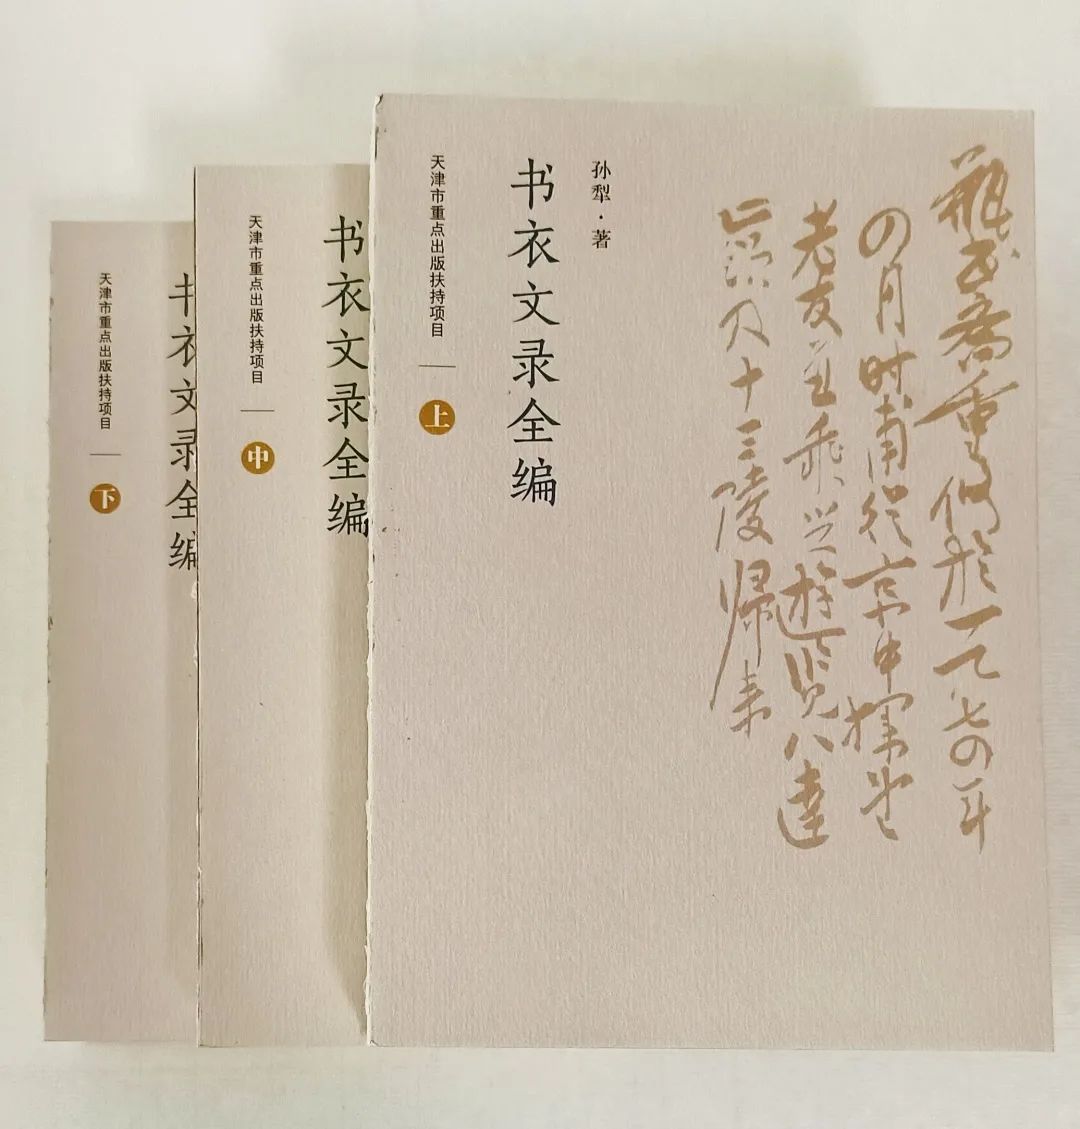 重修於一九七四年
四月时甫從京中
老友并乘兴游览八達
及十三陵歸来
孙犁·著
书衣文录全编
天津市重点出版扶持项目
上
书衣文录全编
天津市重点出版扶持项目
中
书衣文录全编
天津市重点出版扶持项目
下